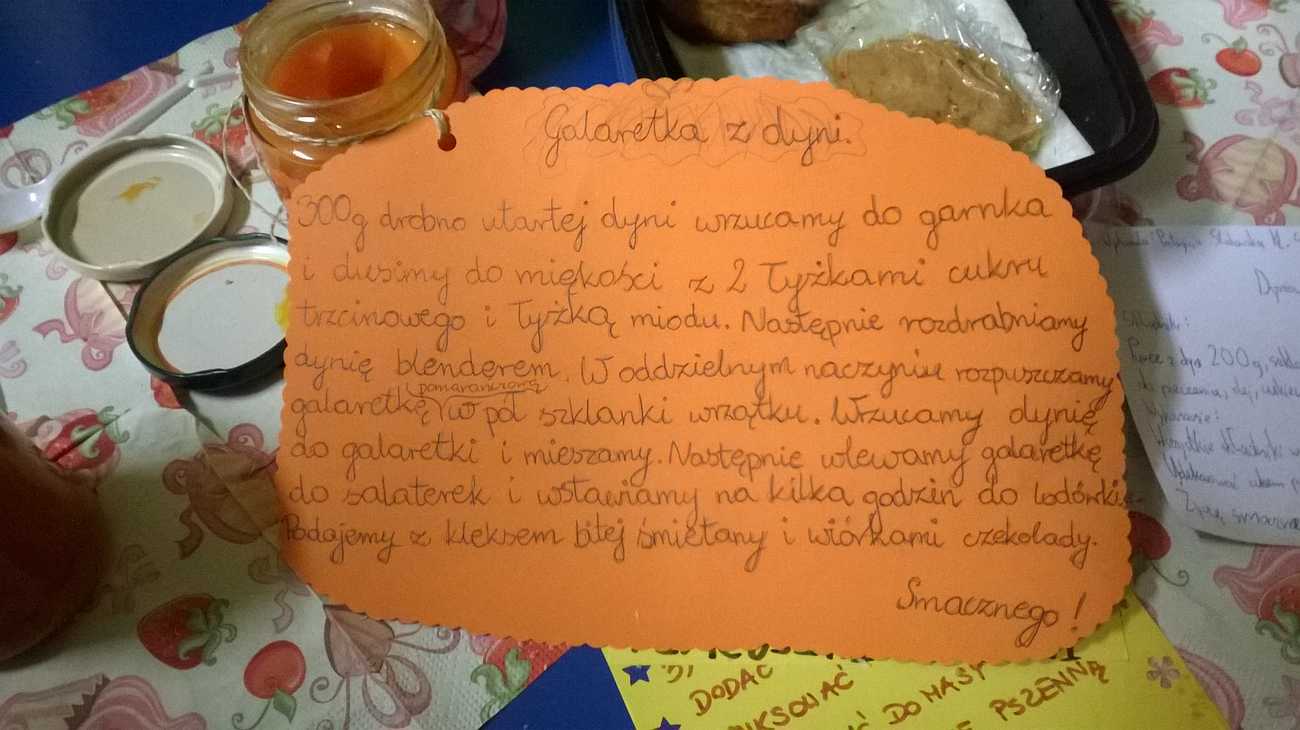 Galaretka z dyni.
300g drobno utartej dyni wrzucamy do garnka
i dusimy do miękości z 2 łyżkami cukru
trzcinowego i łyżką miodu. Następnie rozdrabniamy
dynię blenderem. W oddzielnym naczyniu rozpuszczamy
pomarańczową
galaretkę w pół szklanki wrzątku. Wrzucamy dynię
do galaretki i mieszamy. Następnie wlewamy galaretkę
do salaterek i wstawiamy na kilka godzin do lodówki.
Podajemy z kleksem bitej śmietany i wiórkami czekolady.
Smacznego!
200g,
Wszystkie składniki
DODAĆ
DO MASY
PSZENNĄ